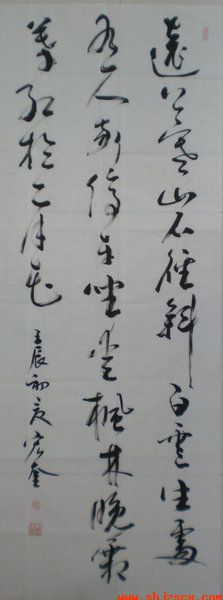 遠上寒山石徑斜白雲生處
有人家停車坐愛楓林晚霜
葉紅於二月花
壬辰初夏奎